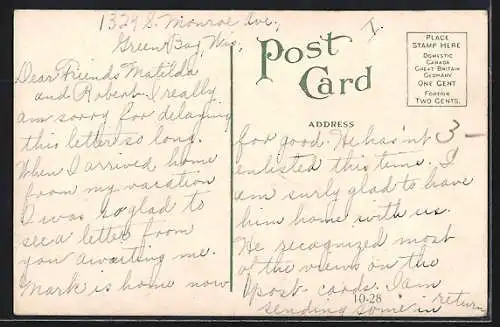 1324 S. Monroe Ave,
Green Bay, Wis,
Dear Friends Matilda
and Robert. I really
am sorry for delaying
this letter so long.
When I arrived home
from my vacation
I was so glad to
see a letter from
you awaiting me.
Mark is home now
Post
Card
I.
PLACE
STAMP HERE
DOMESTIC
CANADA
GREAT BRITAIN
GERMANY
ONE CENT
FOREIGN
TWO CENTS.
ADDRESS
3-
for good. He has'nt
enlisted this time. I
am surly glad to have
him home with us.
He recognized most
of the views on the
post-cards. I am
10-28
sending some in return,